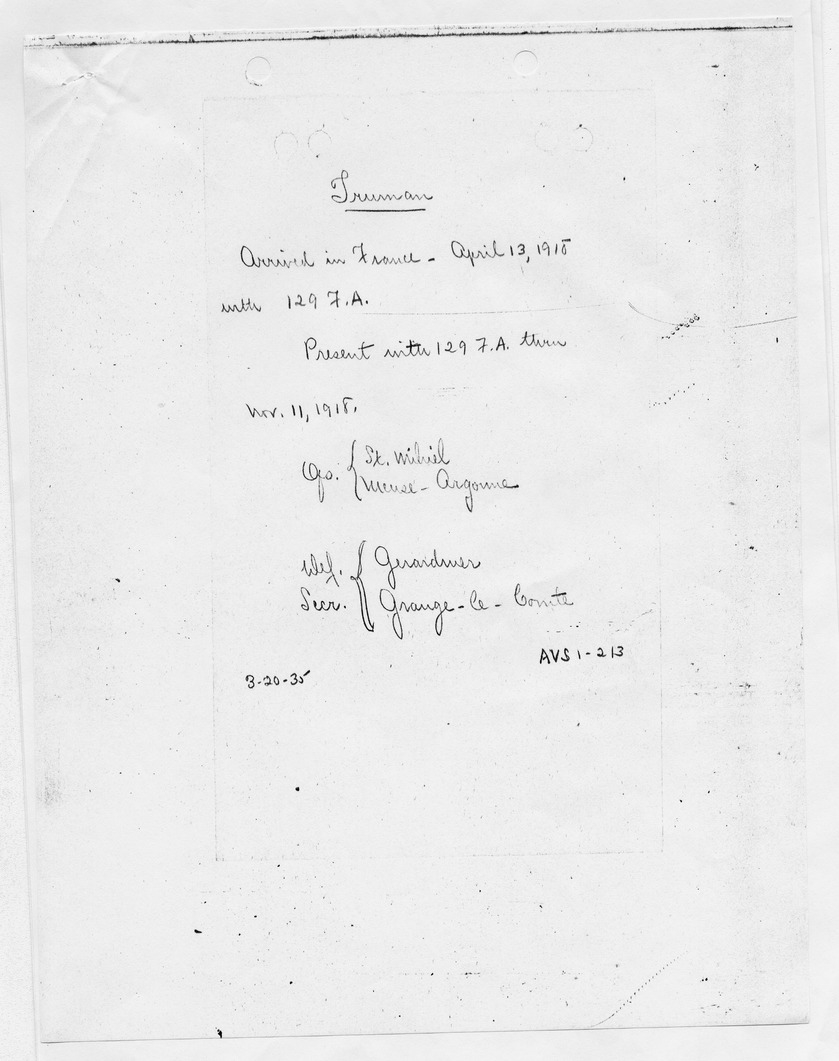 Truman
Arrived in France - April 13, 1918
with 129 F.A.
Present with 129 F.A. thru
Nov. 11, 1918.
Ops. { St. Mihiel
Meuse - Argonne
Def. Secr. { Gerardmer
Grange - le - Comte
AVS 1-213
3-20-35